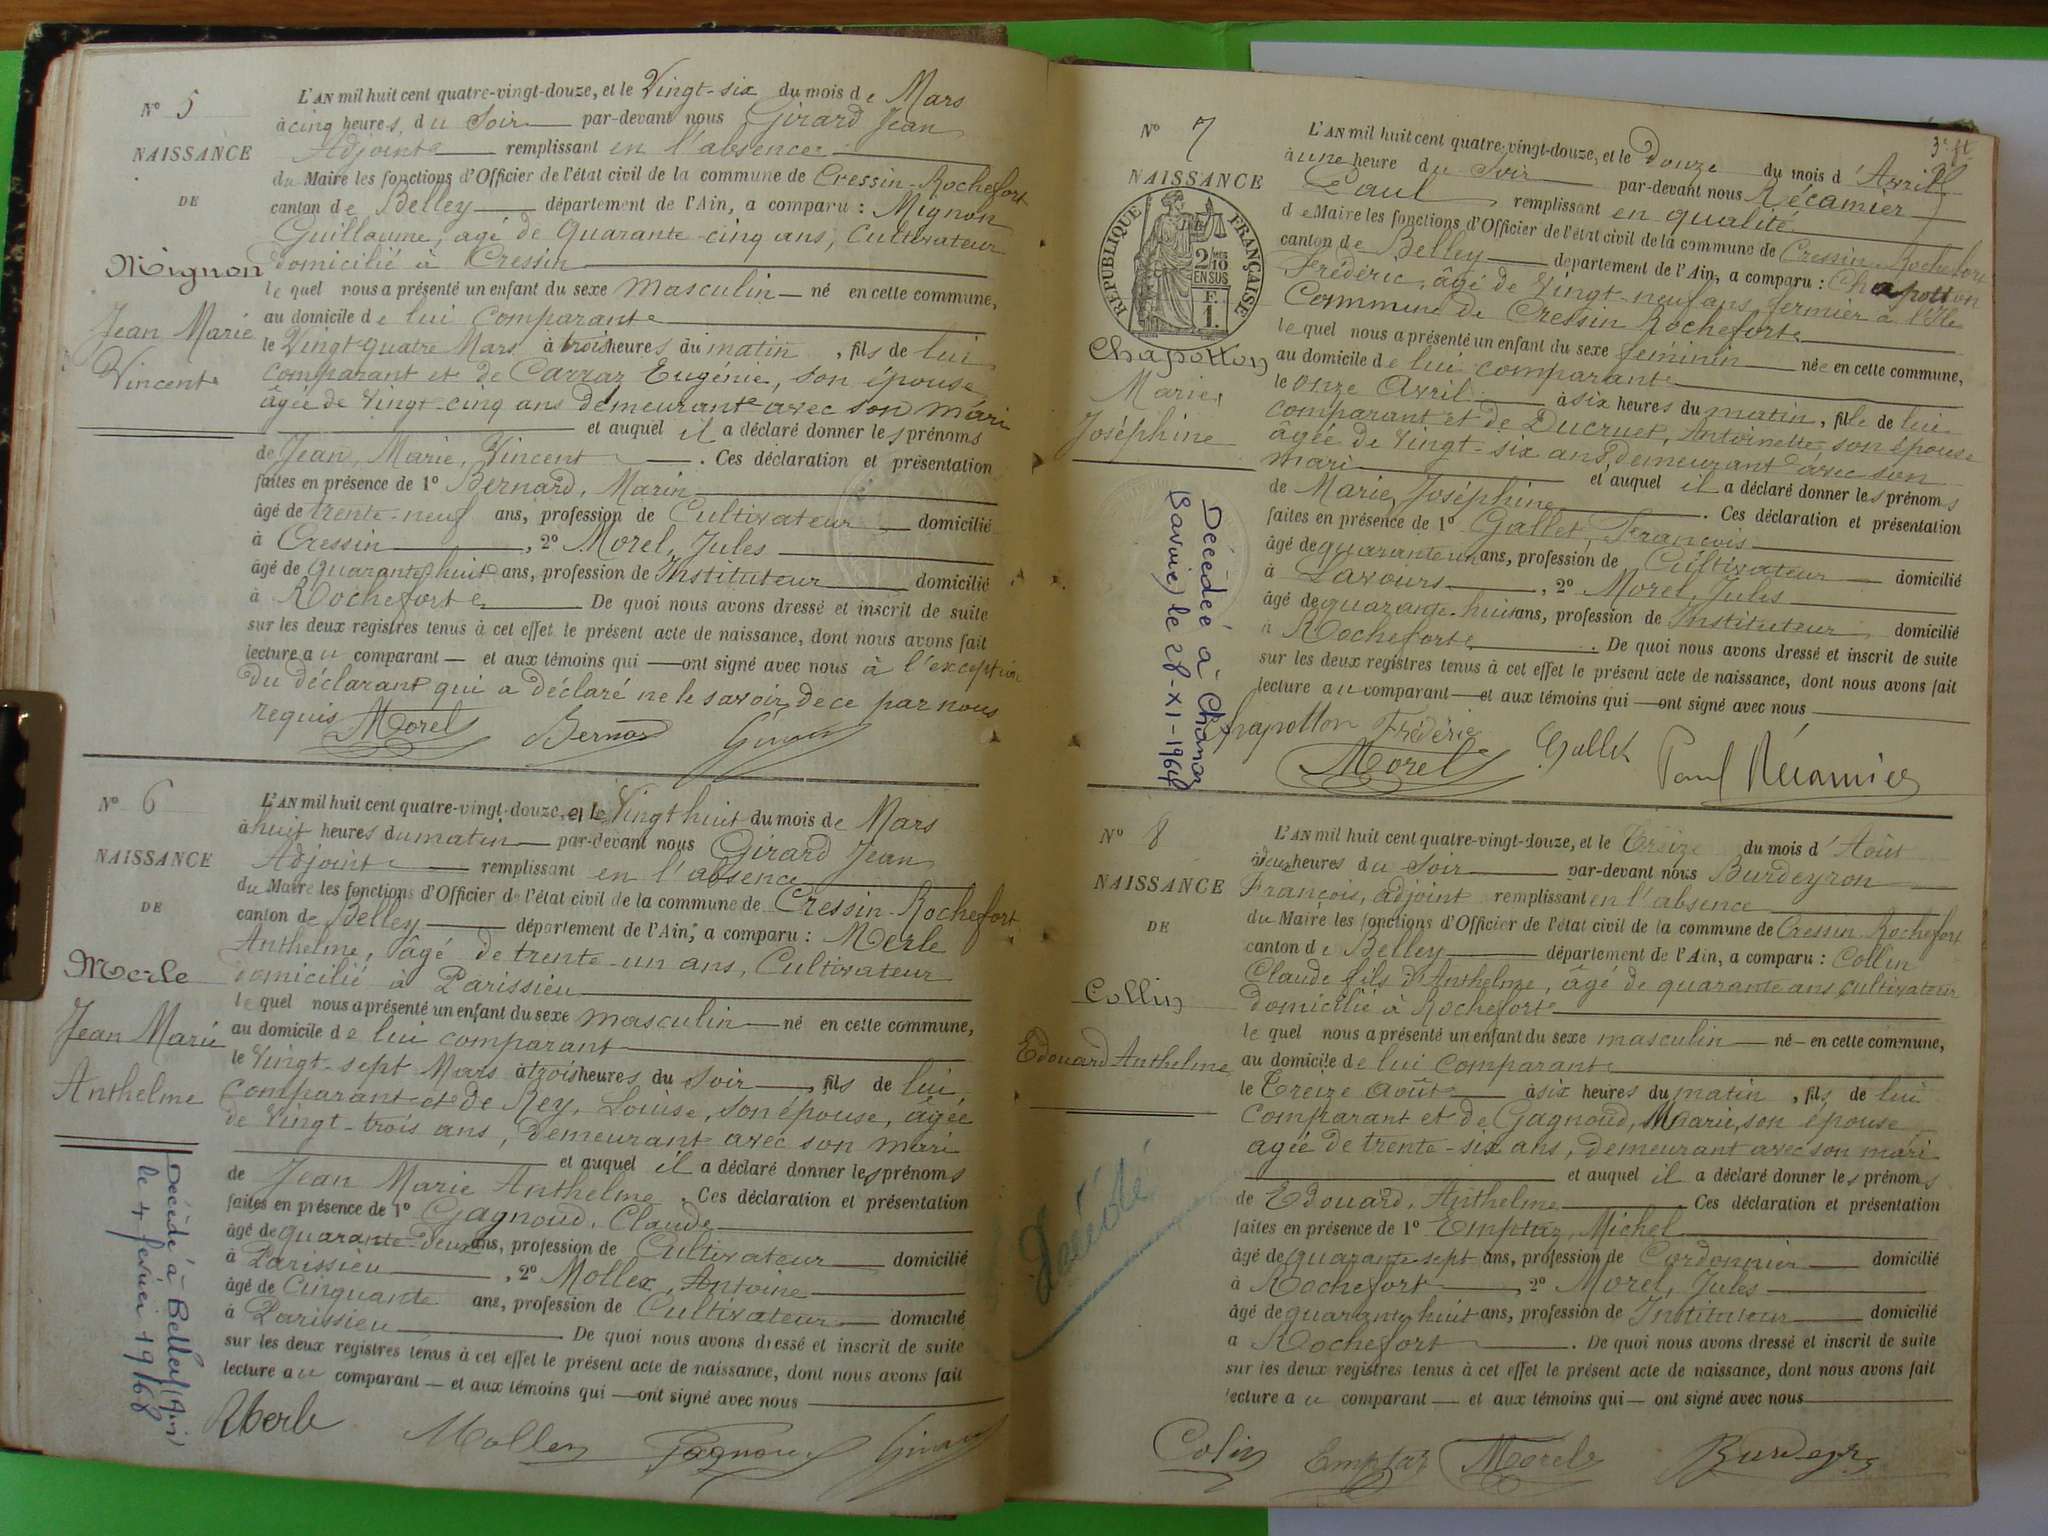 N° 5
NAISSANCE
DE
Mignon
Jean Marie
Vincent
L'AN mil huit cent quatre-vingt-douze, et le Vingt-six du mois de Mars
à cinq heures du Soir par-devant nous Girard Jean
Adjoint remplissant en l'absence
du Maire les fonctions d'Officier de l'état civil de la commune de Cressin-Rochefort
canton de Belley département de l'Ain, a comparu : Mignon
Guillaume, agé de Quarante-cinq ans, Cultivateur
domicilié à Cressin
le quel nous a présenté un enfant du sexe masculin né en cette commune,
au domicile de lui comparant
le Vingt quatre Mars à trois heures du matin, fils de lui
comparant et de Carraz Eugénie, son épouse
âgée de Vingt-cinq ans demeurant avec son mari
et auquel il a déclaré donner les prénoms
de Jean, Marie, Vincent. Ces déclaration et présentation
faites en présence de 1° Bernard, Marin
âgé de trente-neuf ans, profession de Cultivateur domicilié
à Cressin, 2° Morel, Jules
âgé de quarante huit ans, profession de Instituteur domicilié
à Rochefort De quoi nous avons dressé et inscrit de suite
sur les deux registres tenus à cet effet le présent acte de naissance, dont nous avons fait
lecture au comparant et aux témoins qui ont signé avec nous à l'exception
du déclarant qui a déclaré ne le savoir de ce par nous
requis Morel Bernard Girard
N° 6
NAISSANCE
DE
Merle
Jean Marie
Anthelme
Décédé à Belley (Ain)
le 4 février 1968
L'AN mil huit cent quatre-vingt-douze, et le Vingt huit du mois de Mars
à huit heures du matin par-devant nous Girard Jean
Adjoint remplissant en l'absence
du Maire les fonctions d'Officier de l'état civil de la commune de Cressin-Rochefort
canton de Belley département de l'Ain, a comparu : Merle
Anthelme, âgé de trente-un ans, Cultivateur
domicilié à Parissieu
le quel nous a présenté un enfant du sexe masculin né en cette commune,
au domicile de lui comparant
le Vingt-sept Mars à trois heures du Soir, fils de lui
comparant et de Rey, Louise, son épouse, âgée
de Vingt-trois ans, demeurant avec son mari
et auquel il a déclaré donner les prénoms
de Jean Marie Anthelme. Ces déclaration et présentation
faites en présence de 1° Gagnoud, Claude
âgé de quarante-deux ans, profession de Cultivateur domicilié
à Parissieu, 2° Mollex, Antoine
âgé de Cinquante ans, profession de Cultivateur domicilié
à Parissieu De quoi nous avons dressé et inscrit de suite
sur les deux registres tenus à cet effet le présent acte de naissance, dont nous avons fait
lecture au comparant et aux témoins qui ont signé avec nous
Merle Mollex Gagnoud Girard
3e ft
N° 7
NAISSANCE
RÉPUBLIQUE FRANÇAISE
2/10
EN SUS
F.
1.
Chapotton
Marie,
Joséphine
Décédée à Chanaz
(Savoie) le 28-XI-1964
L'AN mil huit cent quatre-vingt-douze, et le Douze du mois d'Avril
à une heure du Soir par-devant nous Récamier
Paul remplissant en qualité
de Maire les fonctions d'Officier de l'état civil de la commune de Cressin-Rochefort
canton de Belley département de l'Ain, a comparu : Chapotton
Frédéric, âgé de Vingt-neuf ans, fermier à l'Ile
Commune de Cressin Rochefort
le quel nous a présenté un enfant du sexe féminin née en cette commune,
au domicile de lui comparant
le Onze Avril à six heures du matin, fille de lui
comparant et de Ducruet, Antoinette, son épouse
âgée de Vingt-six ans, demeurant avec son
mari et auquel il a déclaré donner les prénoms
de Marie, Joséphine. Ces déclaration et présentation
faites en présence de 1° Gallet, Francois
âgé de quarante un ans, profession de Cultivateur domicilié
à Lavours, 2° Morel, Jules
âgé de quarante-huit ans, profession de Instituteur domicilié
à Rochefort. De quoi nous avons dressé et inscrit de suite
sur les deux registres tenus à cet effet le présent acte de naissance, dont nous avons fait
lecture au comparant et aux témoins qui ont signé avec nous
Chapotton Frédéric Gallet Paul Récamier
Morel
N° 8
NAISSANCE
DE
Collin
Edouard Anthelme
Décédé
L'AN mil huit cent quatre-vingt-douze, et le Treize du mois d'Août
à deux heures du Soir par-devant nous Burdeyron
François, adjoint remplissant en l'absence
du Maire les fonctions d'Officier de l'état civil de la commune de Cressin Rochefort
canton de Belley département de l'Ain, a comparu : Collin
Claude fils d'Anthelme, âgé de quarante ans cultivateur
domicilié à Rochefort
le quel nous a présenté un enfant du sexe masculin né en cette commune,
au domicile de lui comparant
le Treize Août à six heures du matin, fils de lui
comparant et de Gagnoud, Marie, son épouse
agée de trente-six ans, demeurant avec son mari
et auquel il a déclaré donner les prénoms
de Edouard, Anthelme Ces déclaration et présentation
faites en présence de 1° Emptaz, Michel
âgé de quarante sept ans, profession de Cordonnier domicilié
à Rochefort, 2° Morel, Jules
âgé de quarante huit ans, profession de Instituteur domicilié
a Rochefort. De quoi nous avons dressé et inscrit de suite
sur les deux registres tenus à cet effet le présent acte de naissance, dont nous avons fait
lecture au comparant et aux témoins qui ont signé avec nous
Colin Emptaz Morel Burdeyron